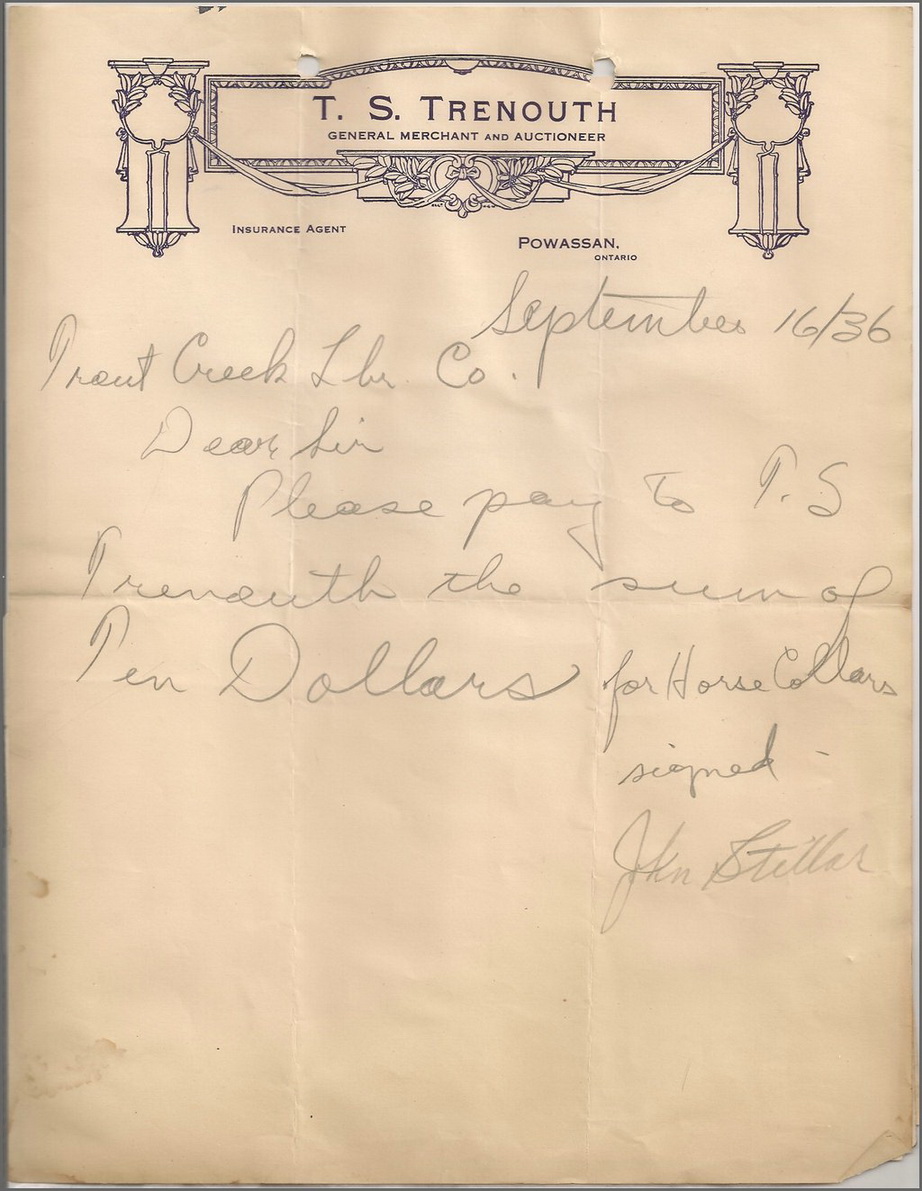 T. S. TRENOUTH
GENERAL MERCHANT AND AUCTIONEER
INSURANCE AGENT
POWASSAN,
ONTARIO
September 16/36
Trout Creek Lbr. Co.
Dear Sir
Please pay to T. S
Trenouth the sum of
Ten Dollars for Horse Collars
signed -
John Stillar